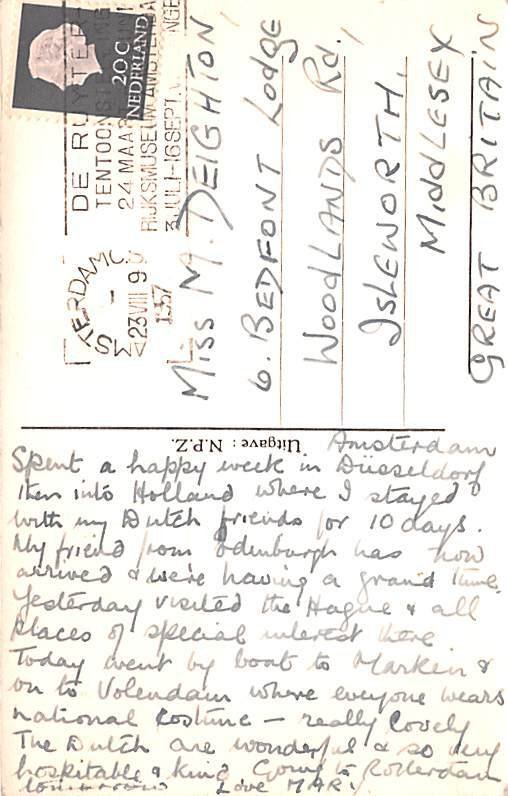 20 C
NEDERLAND
DE RUYTER
TENTOONS
24 MAAR
RIJKSMUSEUM AMSTERDA
3 JULI-16 SEPT.
NGE
AMSTERDAM C.
23 VIII 9
1957
Miss M. DEIGHTON
6. BEDFONT Lodge
WOODLANDS Rd.,
ISLEWORTH,
MIDDLESEX
GREAT BRITAIN
Uitgave : N.P.Z.
Amsterdam
Spent a happy week in Düsseldorf
then into Holland where I stayed
with my Dutch friends for 10 days.
My friend from Edinburgh has now
arrived & we're having a grand time.
Yesterday visited the Hague & all
places of special interest there
Today went by boat to Marken &
on to Volendam where everyone wears
national costume — really lovely
The Dutch are wonderful & so very
hospitable & kind Going to Rotterdam
tomorrow Love MARY